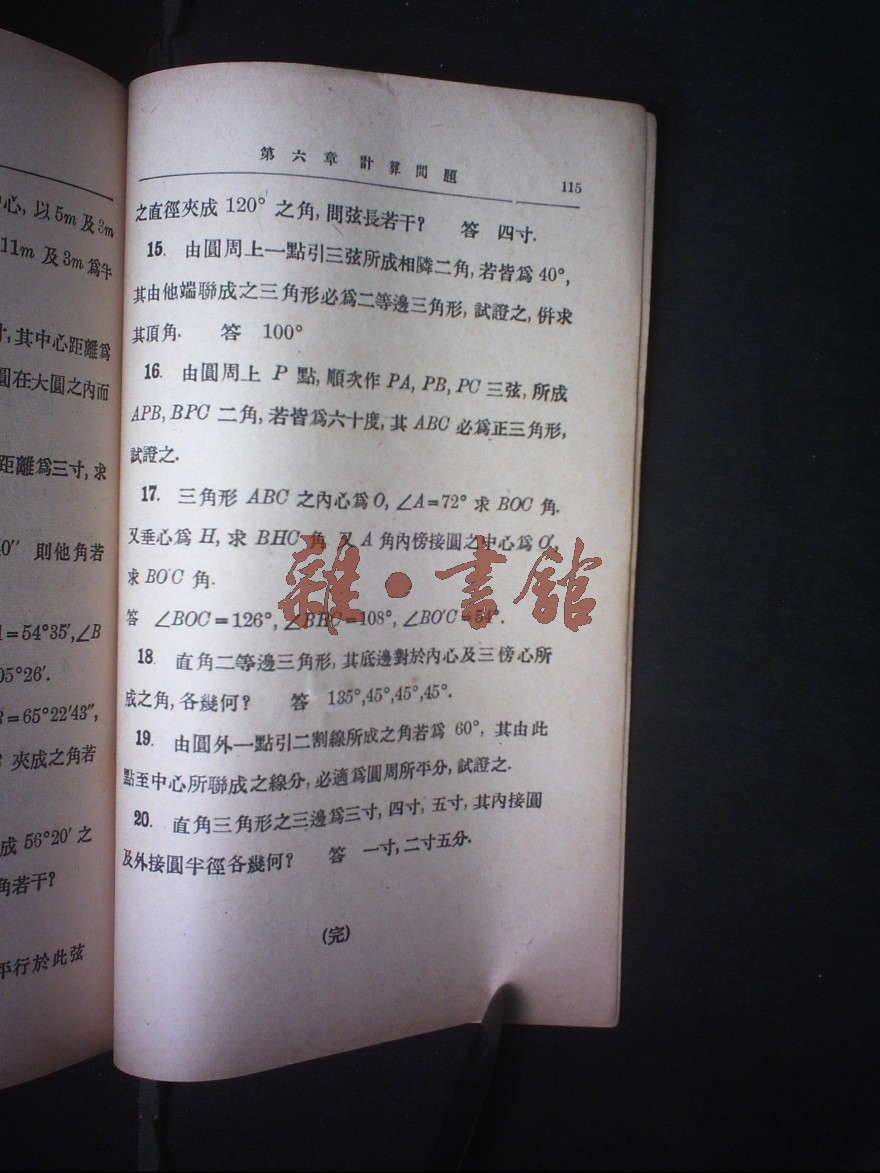 心, 以 5m 及 3m
11m 及 3m 爲半
其中心距離爲
圓在大圓之內而
距離爲三寸, 求
0″ 則他角若
=54°35′,∠B
05°26′.
=65°22′43″,
夾成之角若
成 56°20′ 之
角若干?
平行於此弦
第六章 計算問題 115
之直徑夾成 120° 之角, 問弦長若干? 答 四寸.
15. 由圓周上一點引三弦所成相隣二角, 若皆爲 40°,
其由他端聯成之三角形必爲二等邊三角形, 試證之, 併求
其頂角. 答 100°
16. 由圓周上 P 點, 順次作 PA, PB, PC 三弦, 所成
APB, BPC 二角, 若皆爲六十度, 其 ABC 必爲正三角形,
試證之.
17. 三角形 ABC 之內心爲 O, ∠A=72° 求 BOC 角.
又垂心爲 H, 求 BHC 角. 又 A 角內傍接圓之中心爲 O′,
求 BO′C 角.
答 ∠BOC=126°, ∠BHC=108°, ∠BO′C=54°.
18. 直角二等邊三角形, 其底邊對於內心及三傍心所
成之角, 各幾何? 答 135°,45°,45°,45°.
19. 由圓外一點引二割線所成之角若爲 60°, 其由此
點至中心所聯成之線分, 必適爲圓周所平分, 試證之.
20. 直角三角形之三邊爲三寸, 四寸, 五寸, 其內接圓
及外接圓半徑各幾何? 答 一寸, 二寸五分.
(完)
雜·書館